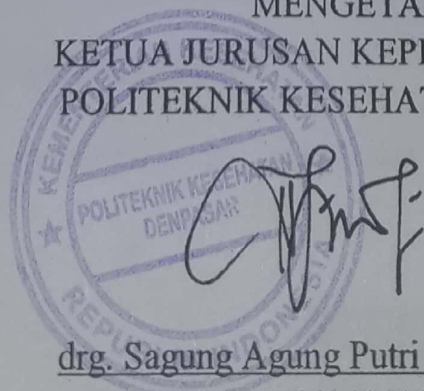 MENGETA
KETUA JURUSAN KEP
POLITEKNIK KESEHAT
KEMENTERIAN KESEHATAN
POLITEKNIK KESEHATAN
DENPASAR
REPUBLIK INDONESIA
drg. Sagung Agung Putri